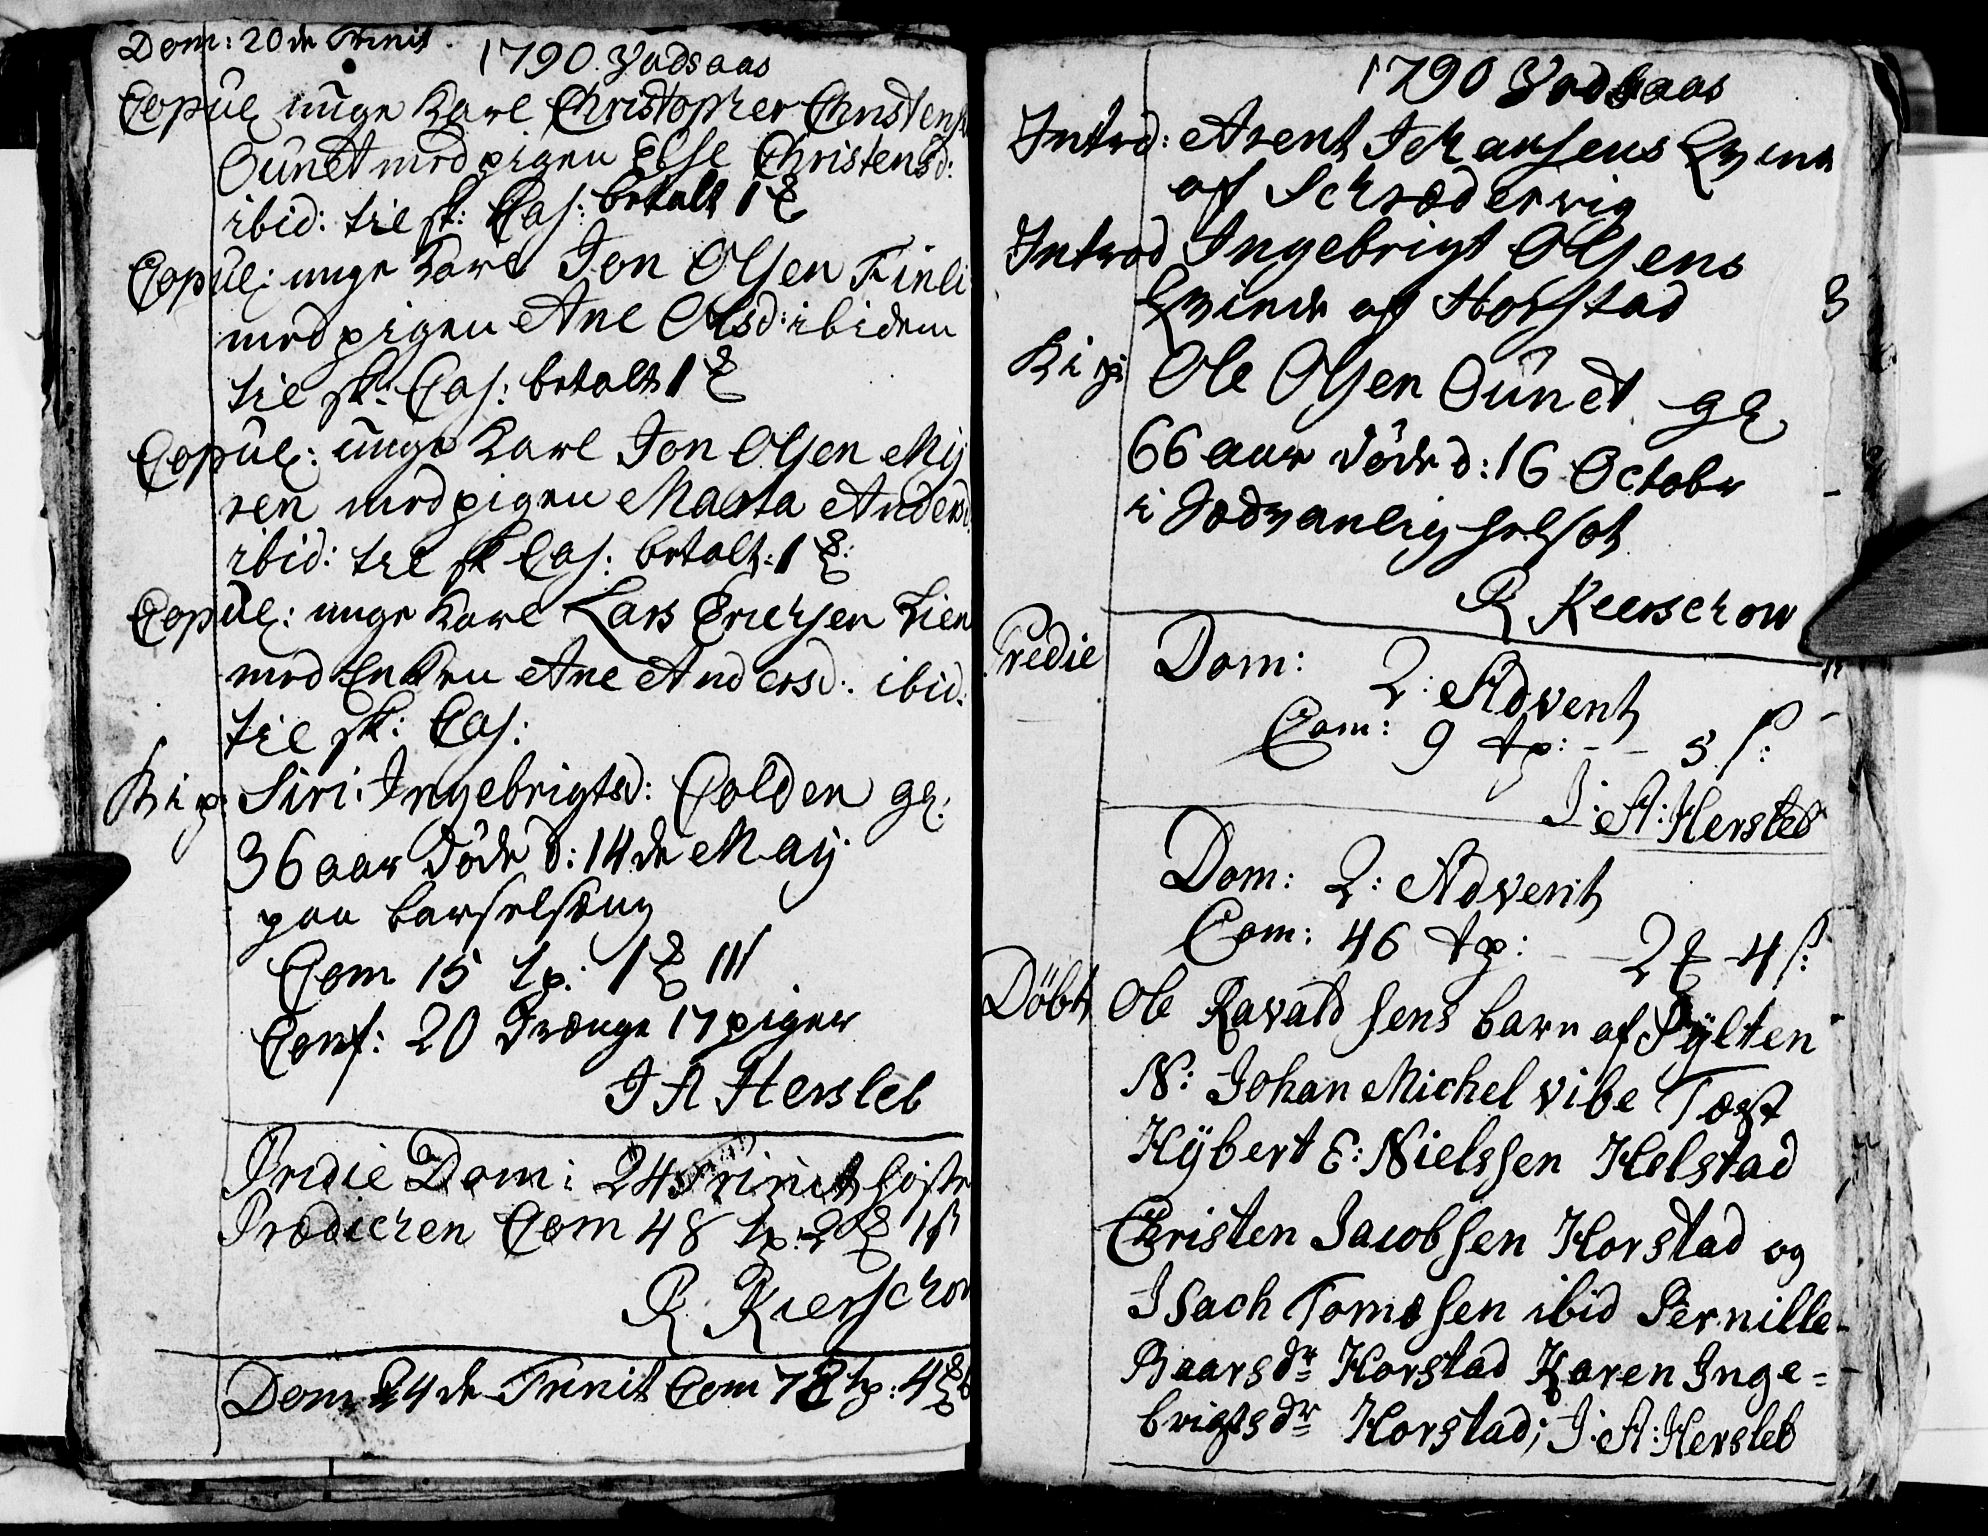 Dom: 20de Trinit.
1790. Vadsaas
Copul: unge Karl Christopher Christens
Ounet med pigen Else Christensd:
ibid: til sk: Cas: betalt 1
Copul: unge Karl Jon Olsen Finli
med pigen Ane Olsd: ibidem
til sk: Cas: betalt 1
Copul: unge Karl Jon Olsen My
ren med pigen Marta Andersd
ibid: til sk Cas: betalt: 1
Copul: unge Karl Lars Erichsen Lien
med Enken Ane Andersd: ibid:
til sk: Cas:
Siri Ingebrigtsd: Colden gl:
36 aar döde d: 14de May
paa barselsæng
Com 15 tp: 1
Conf: 20 Drænge 17 piger
J A Hersleb
Predie Dom: 24 Trinit höste
Prædichen Com 48 tp: 2 1
R Kierschow
Dom 24de Trinit Com 78 tp: 4
1790 Vadsaas
Introd: Arent Johansens Qvinde
af Schrædervig
Introd Ingebrigt Olsens
Qvinde af Horstad
3
Ole Olsen Ounet gl
66 aar döde d: 16 Octobr
i Jodvanlig helsot
R Keerschow
Predie Dom: 2: Advent
Com: 9 tp: - - 5 ß:
J: A: Hersleb
Dom: 2: Advent
Com: 46 tp: - - 2 - 4 ß:
Döbt Ole Ravaldsens barn af Sylten
N: Johan Michel vibe Test
Hybert E: Nielssen Helstad
Christen Jacobsen Horstad og
Isach Tomesen ibid Pernille
Baarsdr Horstad Karen Inge=
brigtsdr Horstad; J: A: Hersleb